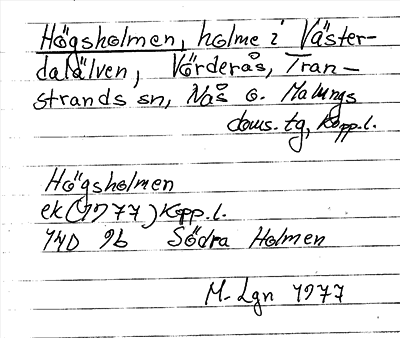 Högsholmen, holme i Väster-
dalälven, Vörderås, Tran-
strands sn, Nås o. Malungs
doms. tg, Kopp.l.
Högsholmen
ek (1977) Kopp.l.
14D 9b Södra Holmen
M. Lgn 1977